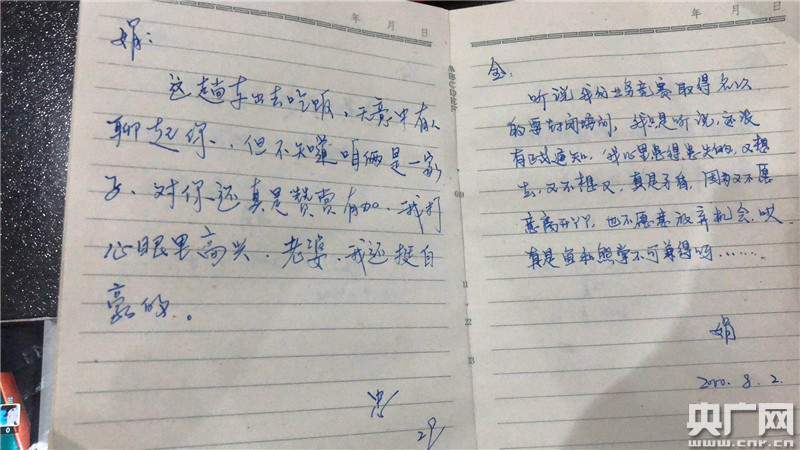 年 月 日
娟:
这趟车出去吃饭,无意中有人
聊起你、但不知道咱俩是一家
子、对你还真是赞赏有加、我打
心眼里高兴、老婆、我还挺自
豪的。
29
年 月 日
听说我们业务竞赛取得名次
的要封闭培训,我只是听说,还没
有正式通知,我心里患得患失的,又想
去,又不想去,真是矛盾,因为又不愿
意离开,也不愿意放弃机会,哎
真是鱼和熊掌不可兼得呀……
娟
2010. 8. 2.
ABCDEF
11
22
33
央广网
www.cnr.cn